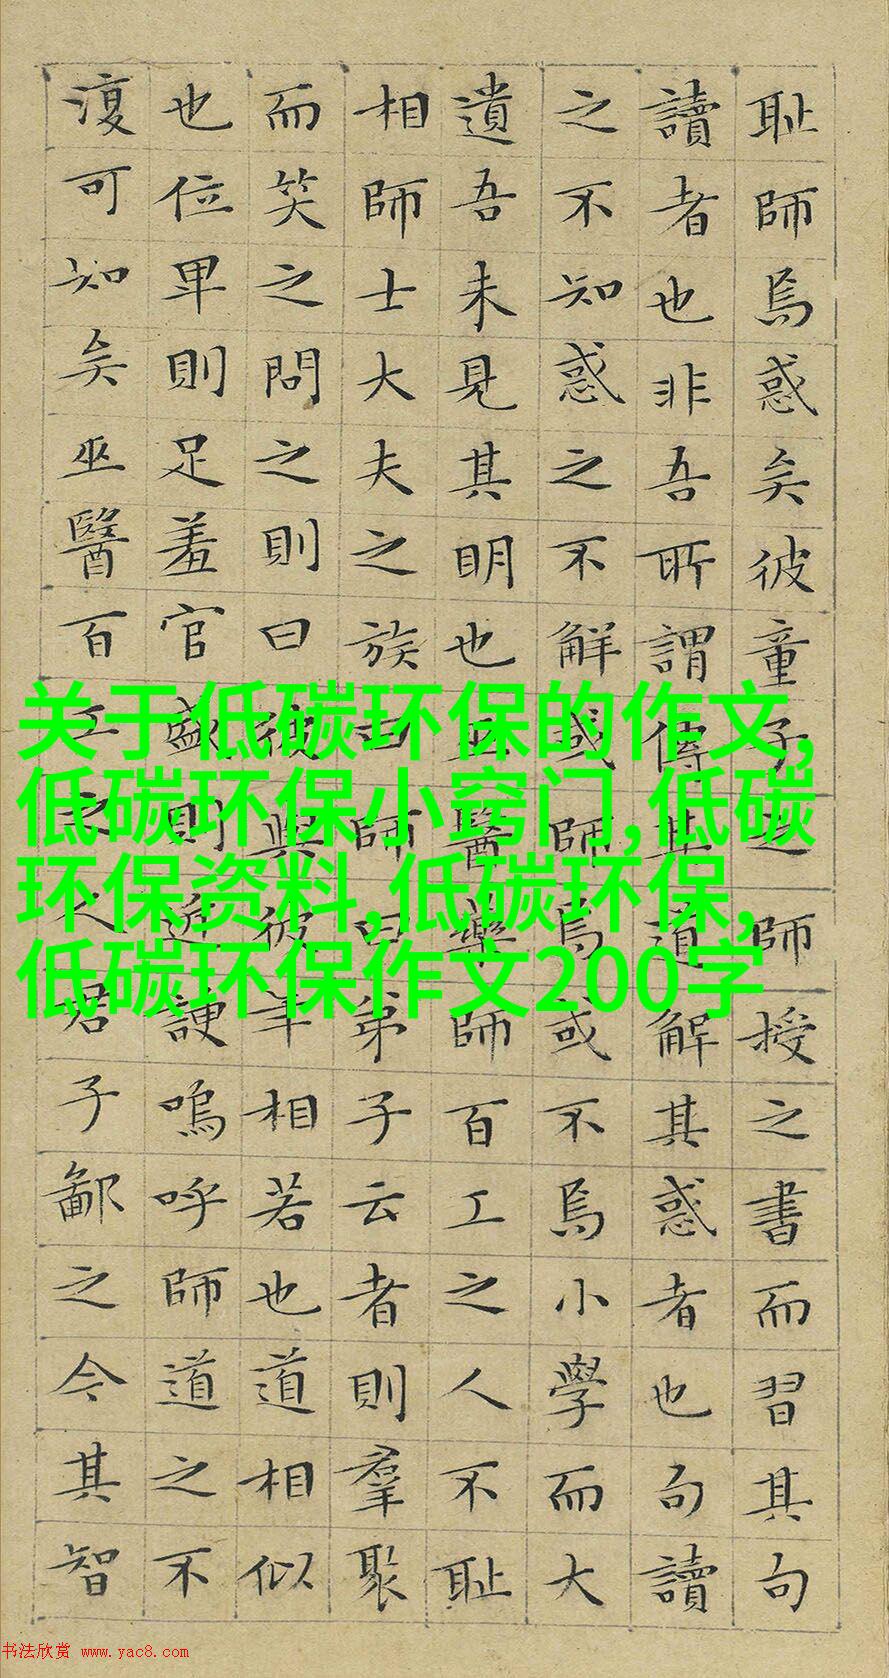 耻師焉惑矣彼童子之師授之書而習其句
讀者也非吾所謂傳其道解其惑者也句讀
之不知惑之不解或師焉或不焉小學而大
遺吾未見其明也巫醫藥師百工之人不耻
相師士大夫之族曰師曰弟子云者則羣聚
而笑之問之則曰彼與彼年相若也道相似
也位卑則足羞官盛則近諛嗚呼師道之不
復可知矣巫醫百工之人君子鄙之今其智
关于低碳环保的作文,
低碳环保小窍门,低碳
环保资料,低碳环保,
低碳环保作文200字
书法欣赏 www.yac8.com